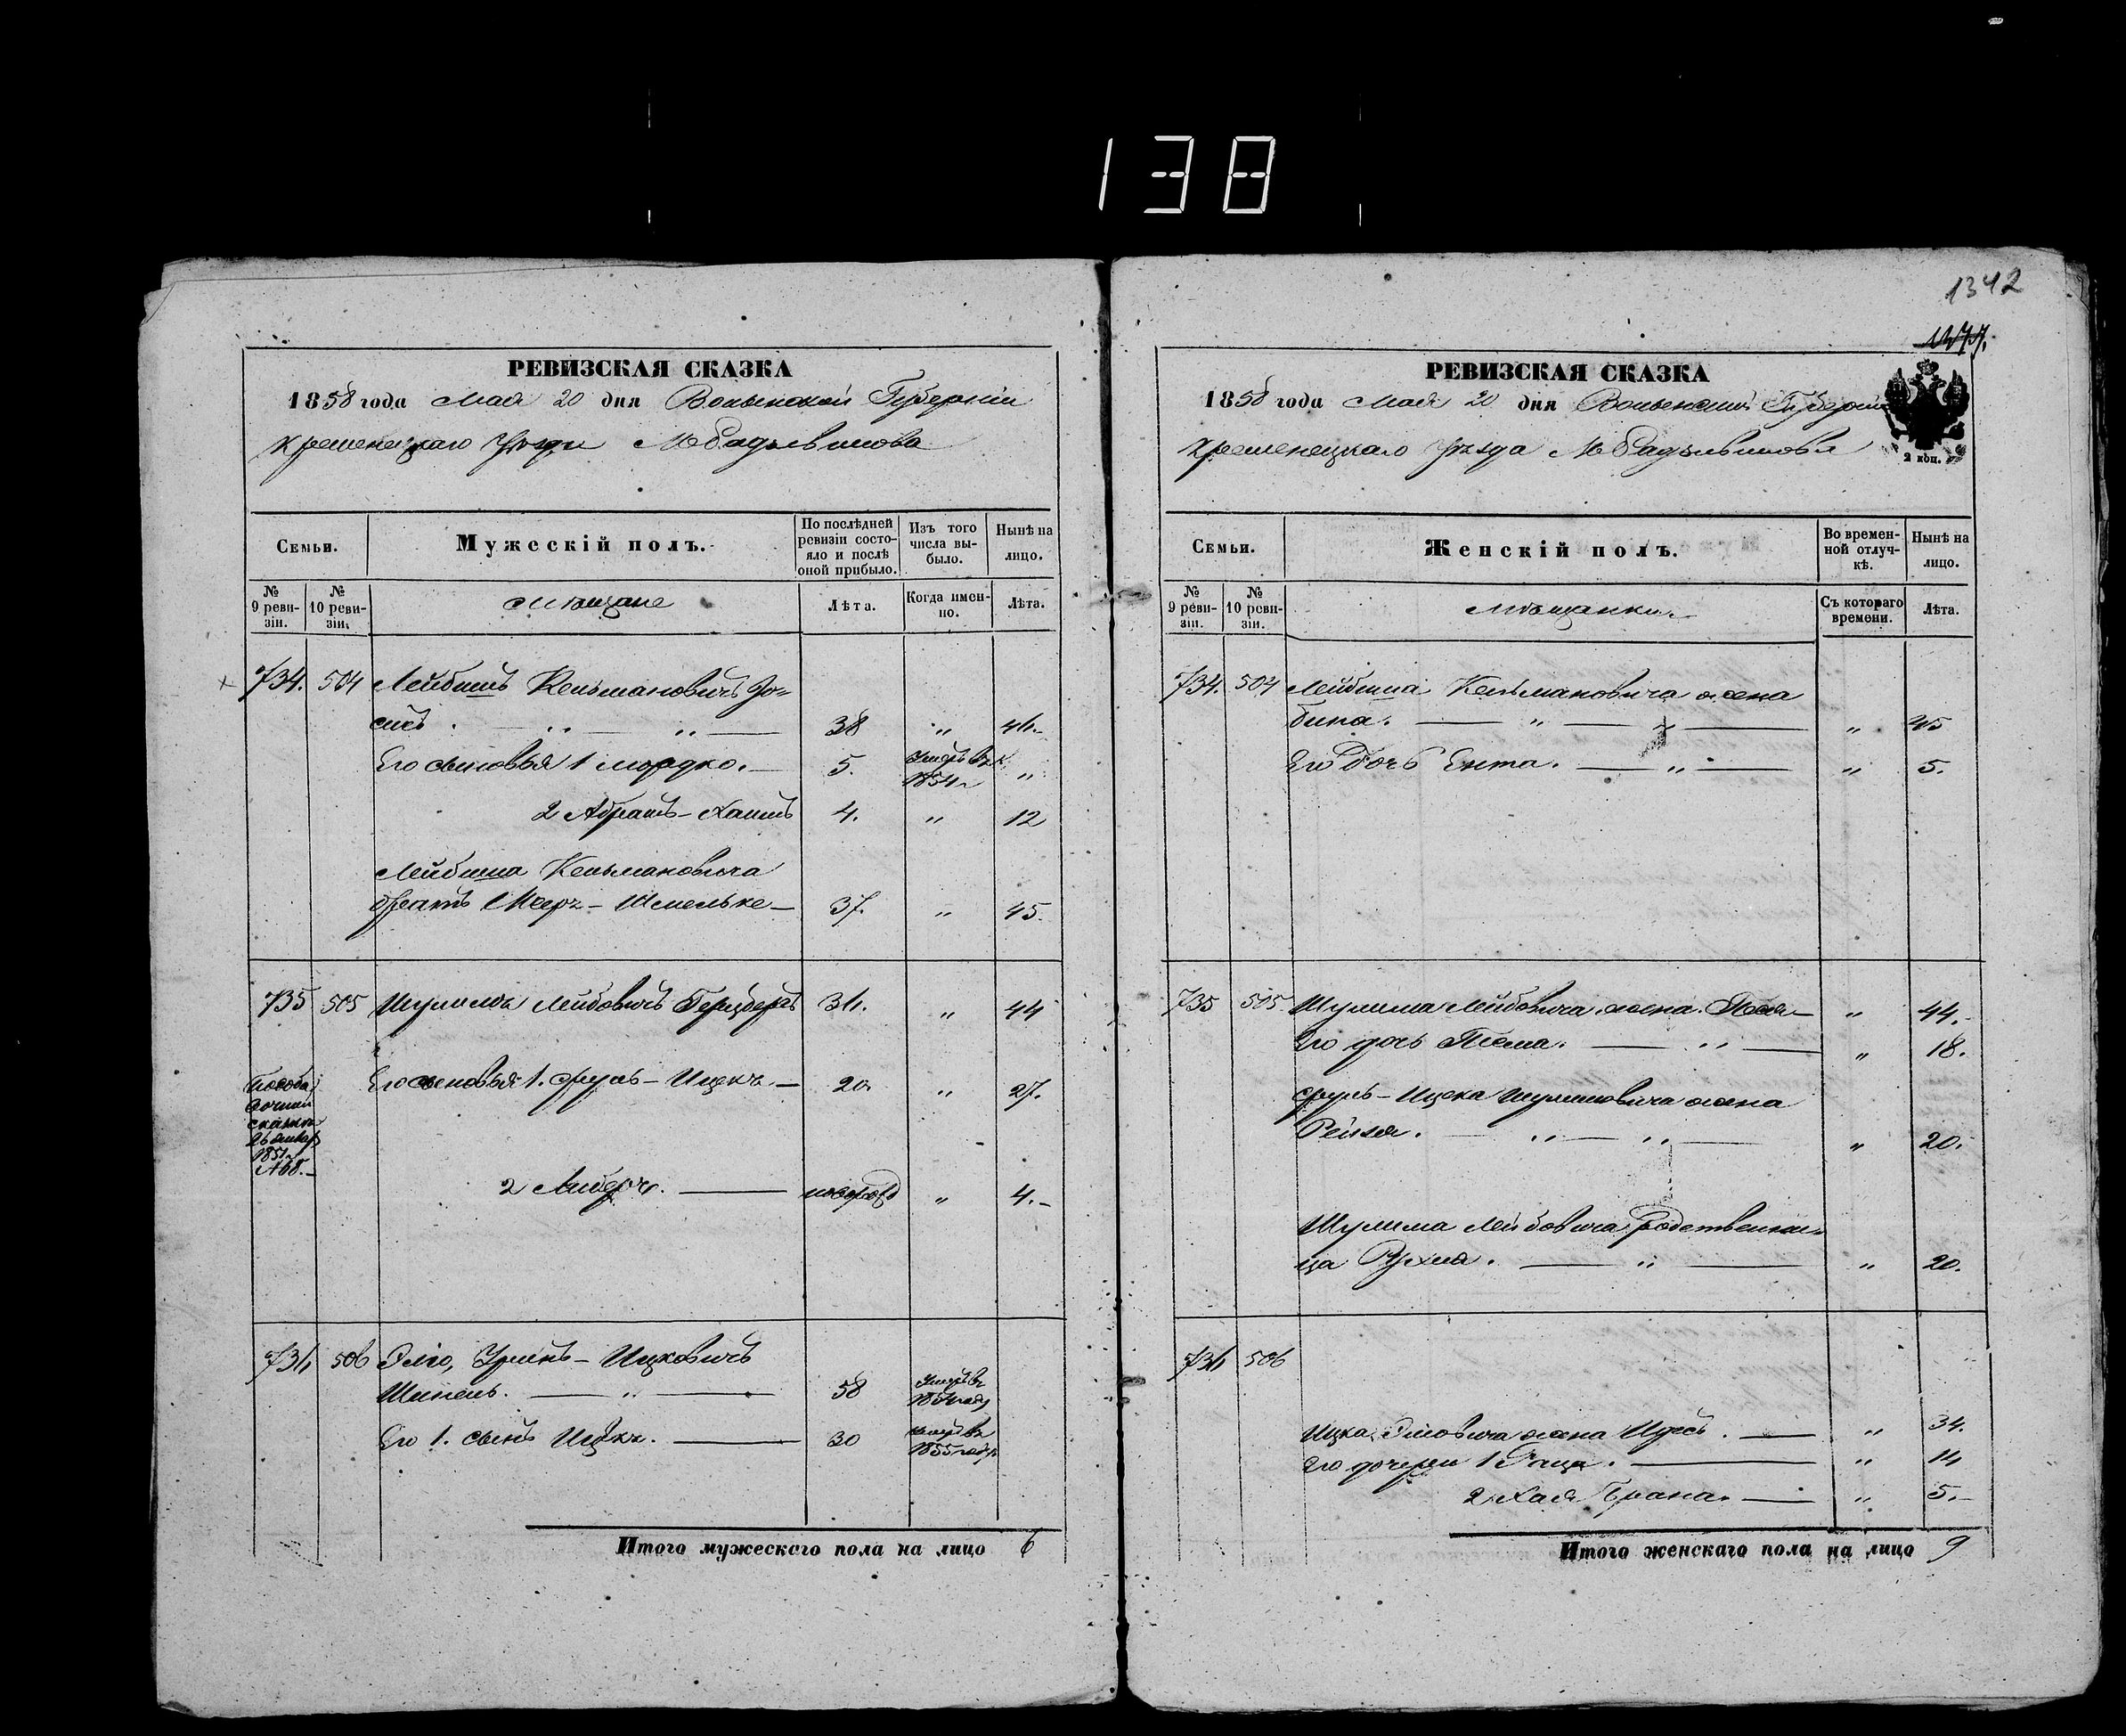 138
1342
РЕВИЗСКАЯ СКАЗКА
1858 года Мая 20 дня Волынской Губернiи
Кременецкаго Уѣзда М Радзивилова
Семьи.
Мужескiй полъ.
По послѣдней ревизiи состо-
яло и послѣ
оной прибыло.
Изъ того
числа вы-
было.
Нынѣ на
лицо.
№
9 реви-
зiи.
№
10 реви-
зiи.
Мѣщане
Лѣта.
Когда имен-
но.
Лѣта.
734. 504 Лейбишъ Кельмановичъ Зо-
38 " 46.
Его сыновья 1 Мордко. 5. Умеръ въ 1854 "
2 Абрамъ-Хаимъ 4. " 12
Лейбиша Кельмановича
братъ Мееръ-Шмельке 37. " 45.
735 505 Шулимъ Лейбовичъ Герцбергъ 36. " 44
Его сыновья 1. Сруль-Ицекъ. 20. " 27.
сказки
26 Января
1851
№68.
2 Либеръ. новорожд " 4.
736 506 Элiо, Ицковичъ
58 Умеръ въ 1854 году
Его 1. сынъ Ицекъ. 30 Умеръ въ 1855 году
Итого мужескаго пола на лицо 6
РЕВИЗСКАЯ СКАЗКА
1858 года Мая 20 дня Волынской Губернiи
Кременецкаго Уѣзда М Радзивилова
2 коп.
Семьи.
Женскiй полъ.
Во времен-
ной отлуч-
кѣ.
Нынѣ на
лицо.
№
9 реви-
зiи.
№
10 реви-
зiи.
Мѣщанки.
Съ котораго
времени.
Лѣта.
734. 504 Лейбиша Кельмановича жена
" 45
Его дочь Ента. " 5.
735 505. Шулима Лейбовича жена " 44.
Его дочь Тема. " 18.
Сруль-Ицека Шулимовича жена
Рейзя. " 20.
Шулима Лейбовича родственни-
ца Рухля. " 20.
736 506
Ицка Элiовича жена " 34.
Его дочери 1 " 14
2 Хая Брана. " 5.
Итого женскаго пола на лицо 9